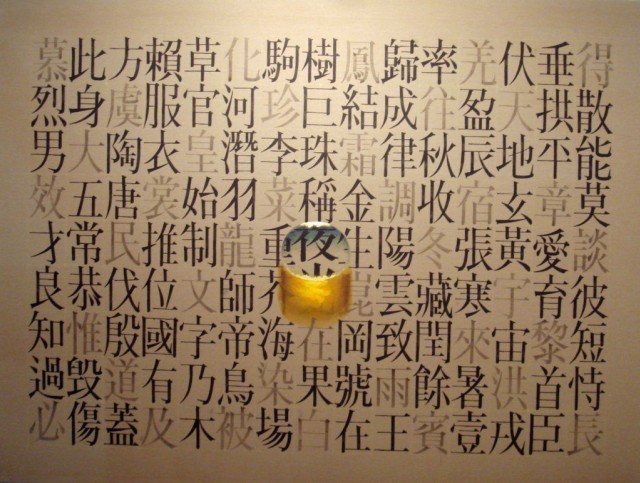 得散能莫談彼短恃長
垂拱平章愛育黎首臣
伏天地玄黃宇宙洪戎
羌盈辰宿張寒來暑壹
率往秋收冬藏閏餘賓
歸成律調陽雲致雨王
鳳結霜金生昆岡號在
樹巨珠稱夜光在果白
駒珍李菜重芥海染場
化河潛羽龍師帝鳥被
草官皇始制文字乃木
賴服衣裳推位國有及
方虞陶唐民伐殷道蓋
此身大五常恭惟毀傷
慕烈男效才良知過必